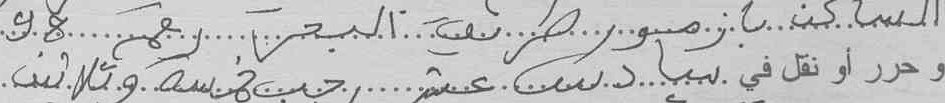 الساكن بازمور طريق البحر رقم
و حرر أو نقل في سادس عشر رجب خمسة وثلاثين